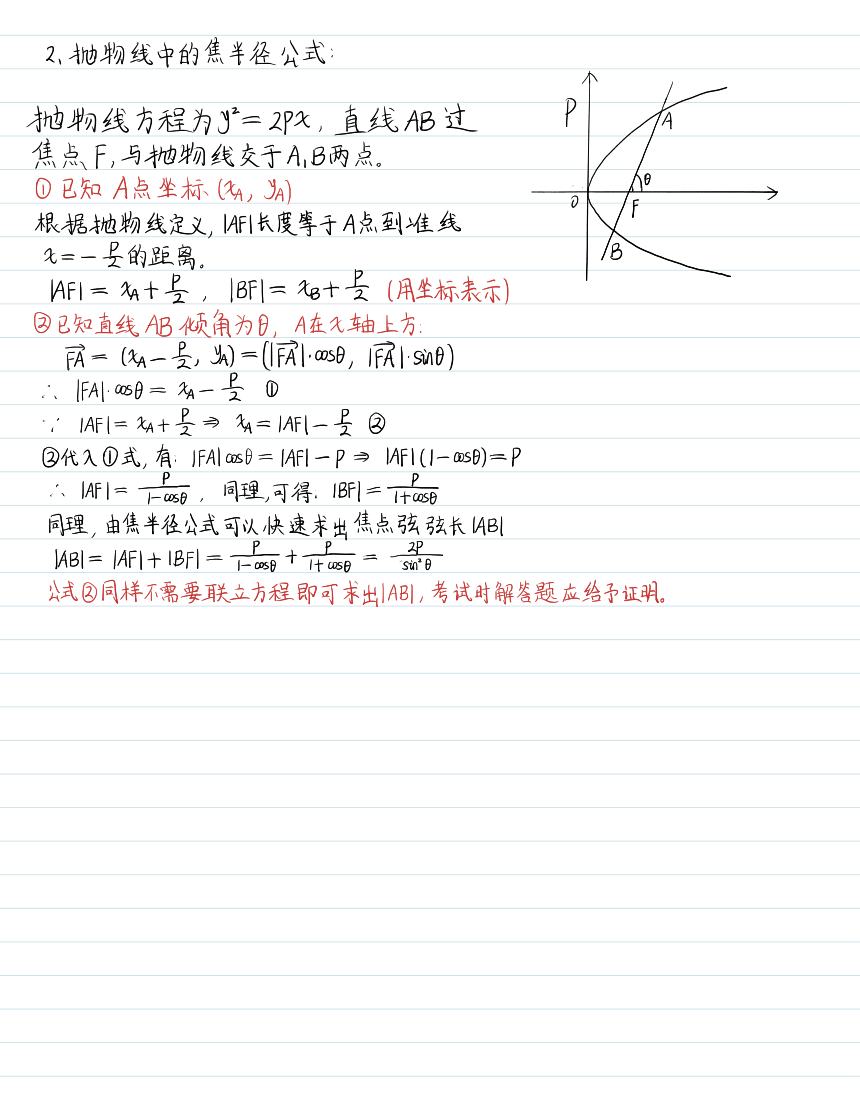 2、抛物线中的焦半径公式:
抛物线方程为y²=2px, 直线AB过
焦点F,与抛物线交于A,B两点。
①已知 A点坐标(x_A, y_A)
根据抛物线定义,|AF|长度等于A点到准线
x=-p/2的距离。
|AF|=x_A+p/2, |BF|=x_B+p/2 (用坐标表示)
②已知直线AB倾角为θ, A在x轴上方:
→FA=(x_A-p/2, y_A)=(|→FA|·cosθ, |→FA|·sinθ)
∴ |FA|·cosθ=x_A-p/2 ①
∵ |AF|=x_A+p/2⇒x_A=|AF|-p/2 ②
②代入①式,有: |FA|cosθ=|AF|-p⇒|AF|(1-cosθ)=p
∴ |AF|=p/(1-cosθ), 同理,可得: |BF|=p/(1+cosθ)
同理,由焦半径公式可以快速求出焦点弦弦长|AB|
|AB|=|AF|+|BF|=p/(1-cosθ)+p/(1+cosθ)=2p/sin²θ
公式②同样不需要联立方程即可求出|AB|,考试时解答题应给予证明。
P
A
θ
O
F
B